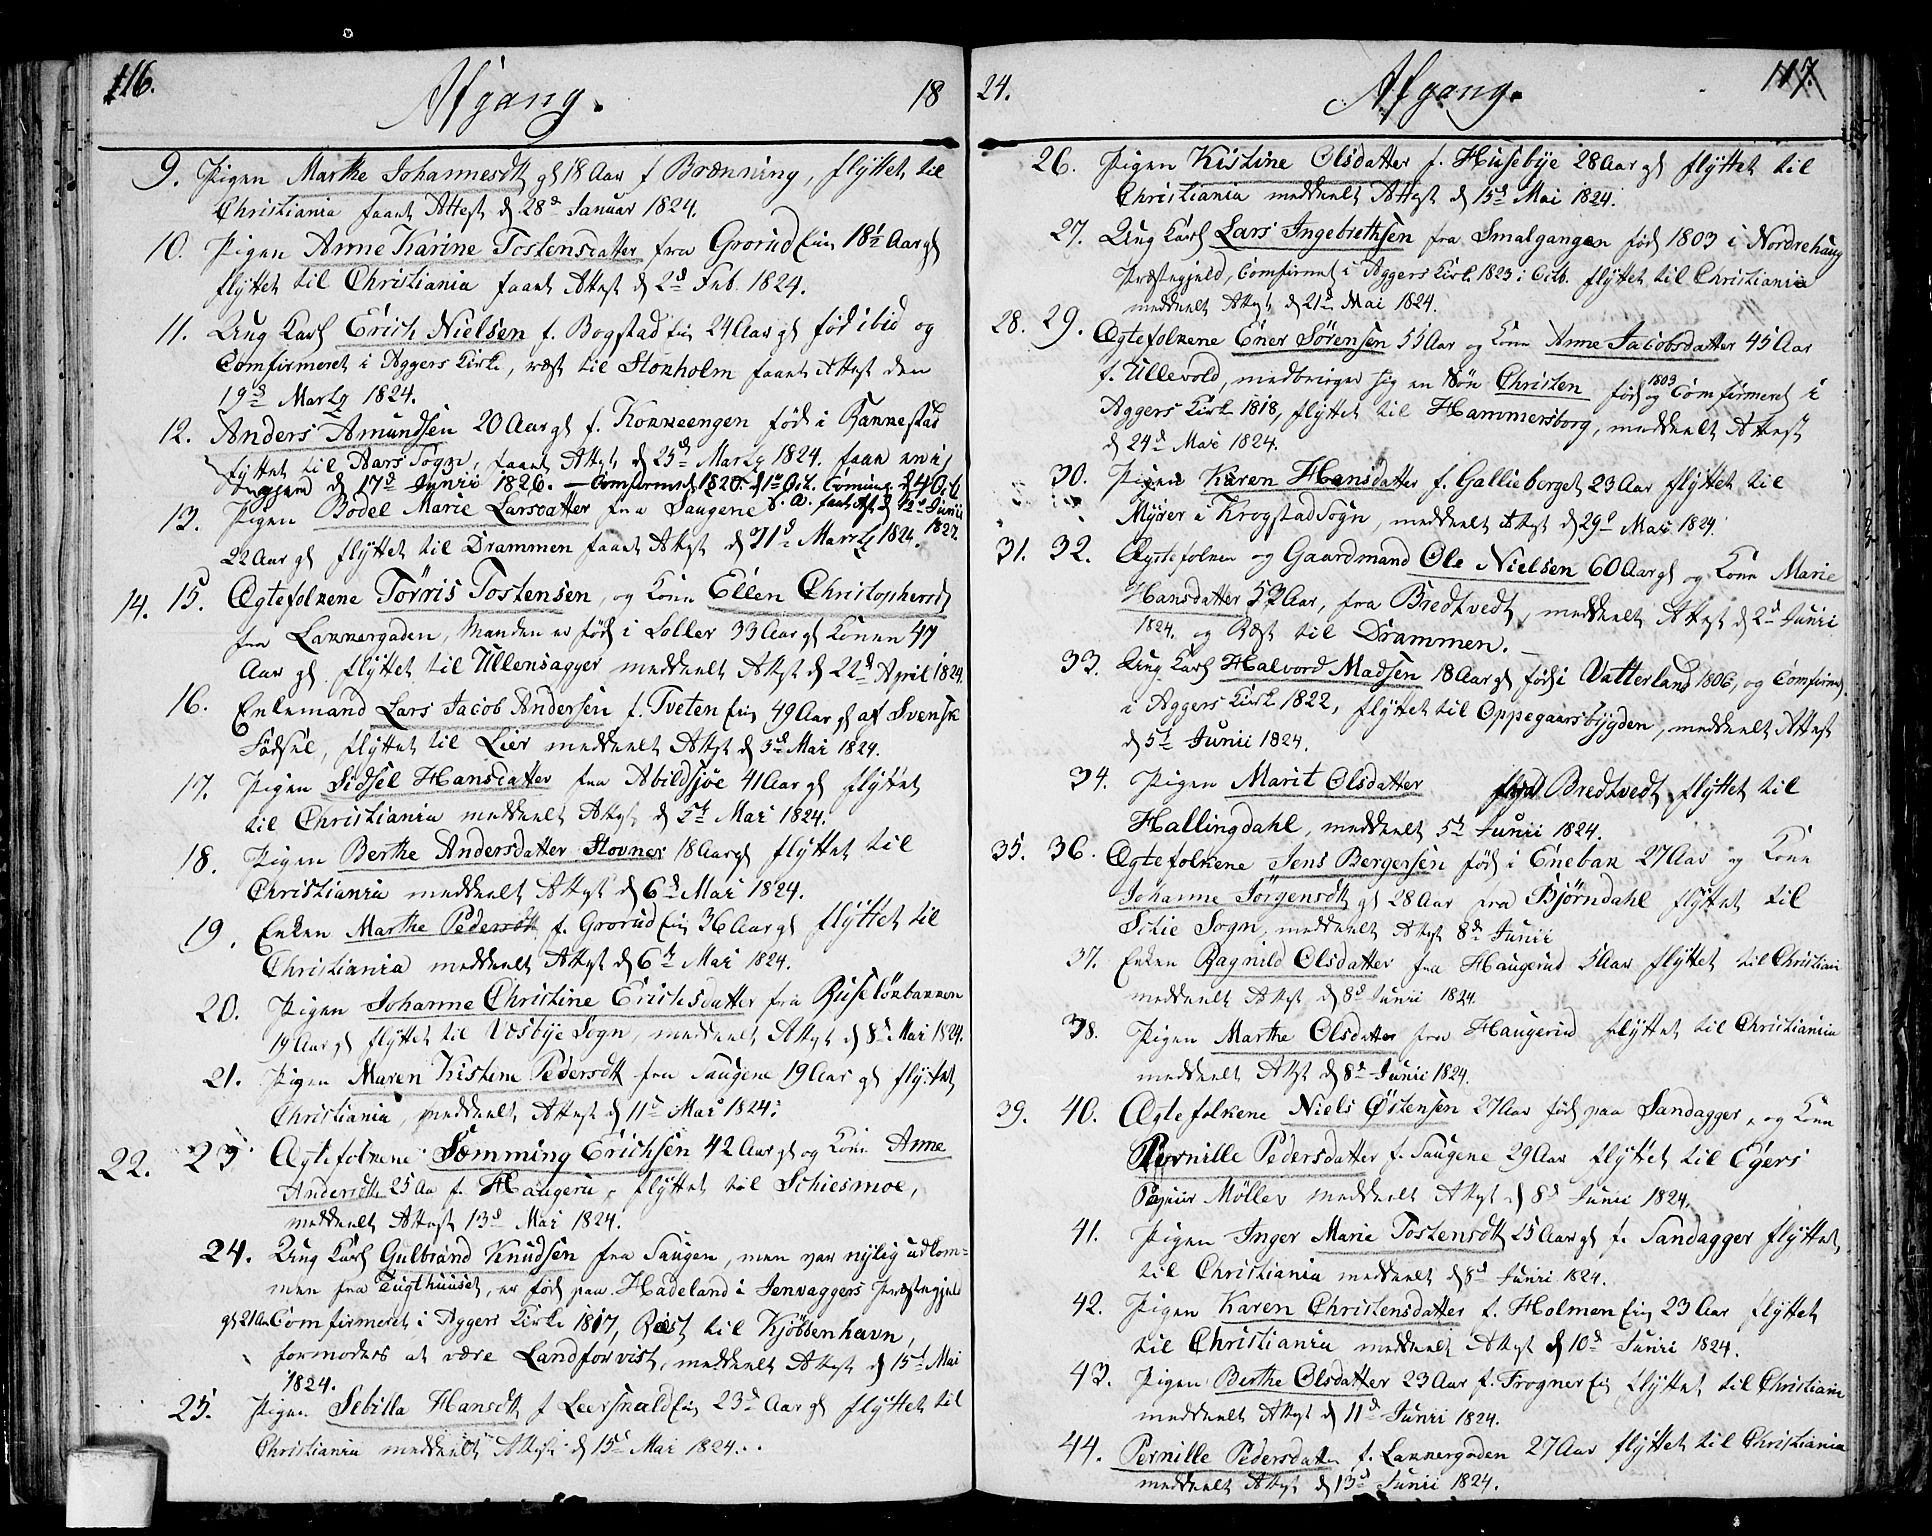 116.
Afgang.
18
9. Pigen Marthe Johannesdtt gl 18 Aar f Brænning, flyttet til
Christiania faaet Attest d 28d Januar 1824.
10. Pigen Anne Karine Tostensdatter fra Grorud Eie 18½ Aar gl
flyttet til Christiania faaet Attest d 2d Feb. 1824.
11. Ung Karl Erich Nielsen f. Bogstad Eie 24 Aar gl fød ibid og
Comfirmeret i Aggers Kirke, ræst til Stokholm faaet Attest den
19d Martz 1824.
12. Anders Amundsen 20 Aar gl f. Kokkeengen fød i Rakkestad
flyttet til Aars Sogn, faaet Attest d 25d Martz 1824. faaet
d 17d Junii 1826. - Comfirmeret 1820. d 1d Oct. d 4 Oct.
s. a. faaet Att d 12d Junii
1827.
13. Pigen Bodel Marie Larsdatter fra Saugene
22 Aar gl flyttet til Drammen faaet Attest d 31d Martz 1824.
14. 15. Ægtefolkene Törris Tostensen, og Kone Ellen Christophersdt
fra Lakkergaden, Manden er fød i Soller 33 Aar gl Konen 47
Aar gl. flyttet til Ullensagger meddeelt Attest d 22d April 1824.
16. Enkemand Lars Jacob Andersen f. Tveten Eie 49 Aar gl af Svensk
Födsel, flyttet til Lier meddeelt Attest d 3d Mai 1824.
17. Pigen Sidsel Hansdatter fra Abildsjöe 41 Aar gl flyttet
til Christiania meddeelt Attest d 5t Mai 1824.
18. Pigen Berthe Andersdatter Stovner 18 Aar gl flyttet til
Christiania meddeelt Attest d 6d Mai 1824.
19. Enken Marthe Pedersdtt f. Grorud Eie 36 Aar gl flyttet til
Christiania meddeelt Attest d 6t Mai 1824.
20. Pigen Johanne Christine Erichsdatter fra Ruselökbakken
19 Aar gl flyttet til Væsbye Sogn, meddeelt Attest d 8d Mai 1824.
21. Pigen Maren Kistine Pedersdtt fra Saugene 19 Aar gl flyttet
Christiania, meddeelt Attest d 11d Mai 1824.
22. 23 Ægtefolkene Sæmming Erichsen 42 Aar gl og Kone Anne
Andersdtt 25 Aa f. Haugerud, flyttet til Schiesmoe,
meddeelt Attest 13d Mai 1824.
24. Ung Karl Gulbrand Knudsen fra Saugen, men var nylig udkom=
men fra Tugthuuset, er fød paa Hadeland i Jenvaggers Præstegjeld
gl 21 Aar Comfirmeret i Aggers Kirke 1817, Ræst til Kjöbbenhavn,
formodes at være Landforvist, meddeelt Attest d 15d Mai
1824.
25. Pigen Sebilla Hansdtt f Leersnald Eie 23d Aar gl flyttet til
Christiania meddeelt Attest d 15d Mai 1824.
24.
Afgang.
117.
26. Pigen Kistine Olsdatter f. Husebye 28 Aar gl flyttet til
Christiania meddeelt Attest d 15d Mai 1824.
27. Ung Karl Lars Ingebrethsen fra Smalgangen fød 1803 i Nordrehaug
Præstegjeld, Comfirmet i Aggers Kirk. 1823 i Octb. flyttet til Christiania
meddeelt Attest, d 21d Mai 1824.
28. 29. Ægtefolkene Ener Sörensen 55 Aar og Kone Anne Jacobsdatter 45 Aar
f. Ullevold, medbringer sig en Sön Christen fød 1803 og Comfirmeret i
Aggers Kirk 1818, flyttet til Hammersborg, meddeelt Attest
d 24d Mai 1824.
30. Pigen Karen Hansdatter f. Gallieberget 23 Aar flyttet til
Myrer i Krogstad Sogn, meddeelt Attest d 29d Mai 1824.
31. 32. Ægtefolken og Gaardmand Ole Nielsen 60 Aar gl og Kone Marie
Hansdatter 57 Aar, fra Bredtvedt, meddeelt Attest d 2d Junii
1824. og Ræst til Drammen.
33. Ung Karl Halvord Madsen 18 Aar gl fød i Vatterland 1806, og Comfirmet
i Aggers Kirk 1822, flyttet til Oppegaarsbygden, meddeelt Attest
d 5t Junii 1824.
34. Pigen Marit Olsdatter fra Bredtvedt flyttet til
Hallingdahl, meddeelt 5t Junii 1824.
35. 36. Ægtefolkene Jens Bergersen fød i Enebak 27 Aar og Kone
Johanne Jörgensdtt gl 28 Aar fra Björndahl flyttet til
Schie Sogn, meddeelt Attest 8d Junii
37. Enken Ragnild Olsdatter fra Haugerud 51 Aar flyttet til Christian
meddeelt Attest d 8d Junii 1824.
38. Pigen Marthe Olsdatter fra Haugerud flyttet til Christiania
meddeelt Attest d 8d Junii 1824.
39. 40. Ægtefolkene Niels Östensen 27 Aar fød paa Sandagger, og Kone
Pernille Pedersdatter f. Saugene 29 Aar flyttet til Egers
Papiir Möller meddeelt Attest d 8d Junii 1824.
41. Pigen Inger Marie Tostensdtt 25 Aar gl f. Sandagger flyttet
til Christiania meddeelt d 8d Junii 1824.
42. Pigen Karen Christensdatter f. Holmen Eie 23 Aar flyttet
til Christiania meddeelt Attest d 10d Junii 1824.
43. Pigen Berthe Olsdatter 23 Aar f. Frogner Eie flyttet til Christiania
meddeelt Attest d 11d Junii 1824.
44. Pernille Pedersdatter f. Lakkergaden 27 Aar flyttet til Christiania
meddeelt Attest d 13d Junii 1824.